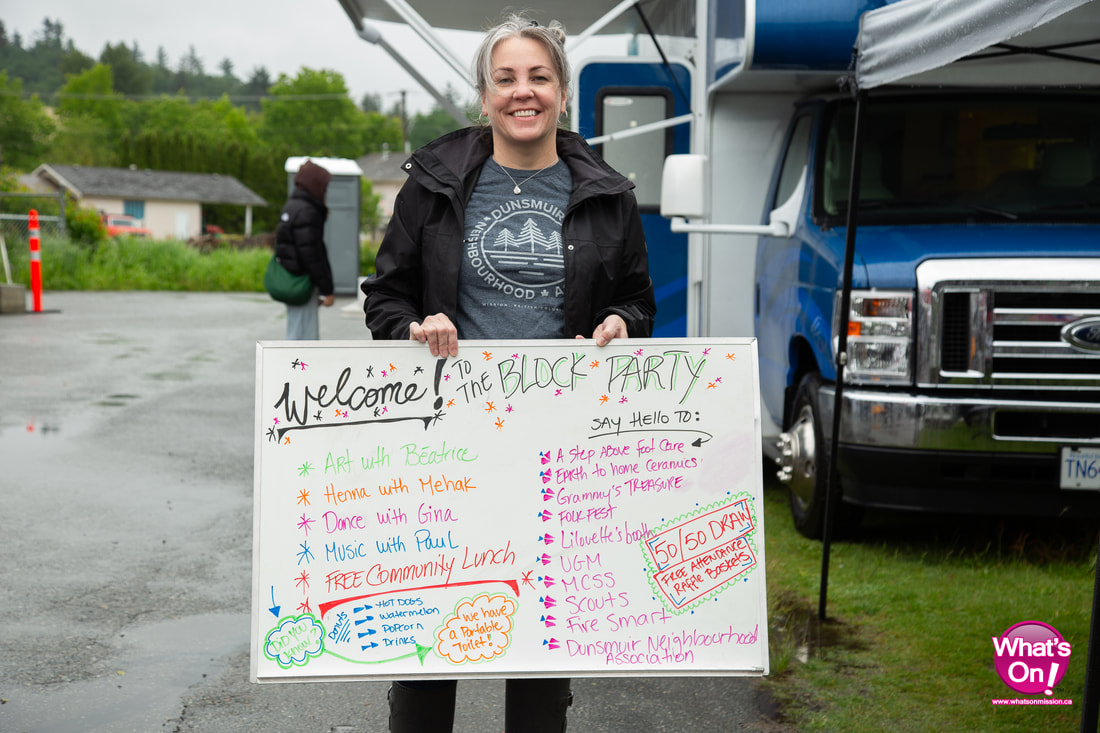 DUNSMUIR
NEIGHBOURHOOD A
MISSION, BRITISH COLUM
Welcome! TO THE BLOCK PARTY
Art with Béatrice
Henna with Mehak
Dance with Gina
Music with Paul
FREE Community Lunch
Donuts
HOT DOGS
Watermelon
POPCORN
DRINKS
DO YOU
KNOW?
We have
a Portable
Toilet!
SAY HELLO TO:
A STEP ABOVE FOOT CARE
EARTH TO HOME CERAMICS
Grammy's TREASURE
FOLKFEST
Lilovette's booth
UGM
MCSS
SCOUTS
Fire Smart
Dunsmuir Neighbourhood
Association
50/50 DRAW
FREE ATTENDANCE
Raffle Baskets
TN6
What's
On!
www.whatsonmission.ca